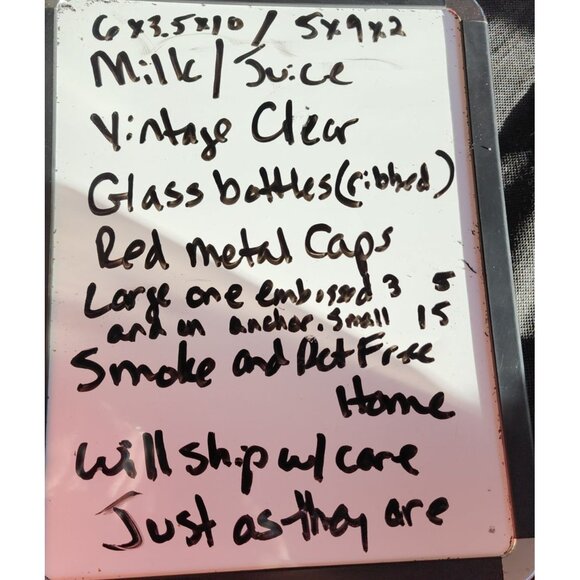 6x3.5x10 / 5x9x2
Milk/Juice
Vintage Clear
Glass bottles (ribbed)
Red metal Caps
Large one embossed 3 5
and an anchor. Small 15
Smoke and Pet Free
Home
will ship w/ care
Just as they are